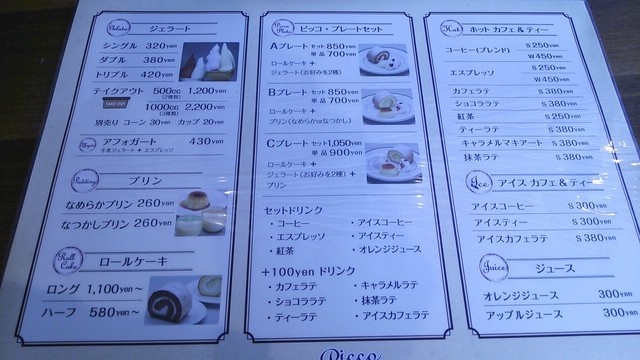 Gelato
ジェラート
シングル 320yen
ダブル 380yen
トリプル 420yen
テイクアウト 500cc 1,200yen
(2種類)
TAKE OUT
1000cc 2,200yen
(3種類)
別売り コーン 30yen カップ 20yen
アフォガート 430yen
牛乳ジェラート + エスプレッソ
Pudding
プリン
なめらかプリン 260yen
なつかしプリン 260yen
Roll Cake
ロールケーキ
ロング 1,100yen～
ハーフ 580yen～
Picco Plate
ピッコ・プレートセット
Aプレート セット 850yen
単品 700yen
ロールケーキ +
ジェラート(お好みを2種)
Bプレート セット 850yen
単品 700yen
ロールケーキ +
プリン(なめらかorなつかし)
Cプレート セット 1,050yen
単品 900yen
ロールケーキ +
ジェラート(お好みを2種) +
プリン
セットドリンク
・コーヒー ・アイスコーヒー
・エスプレッソ ・アイスティー
・紅茶 ・オレンジジュース
+100yen ドリンク
・カフェラテ ・キャラメルラテ
・ショコララテ ・抹茶ラテ
・ティーラテ ・アイスカフェラテ
Hot
ホット カフェ&ティー
コーヒー(ブレンド) S 250yen
W 450yen
エスプレッソ S 250yen
W 450yen
カフェラテ S 380yen
ショコララテ S 380yen
紅茶 S 250yen
ティーラテ S 380yen
キャラメルマキアート S 380yen
抹茶ラテ S 380yen
Ice
アイス カフェ&ティー
アイスコーヒー S 300yen
アイスティー S 300yen
アイスカフェラテ S 380yen
Juice
ジュース
オレンジジュース 300yen
アップルジュース 300yen
Picco